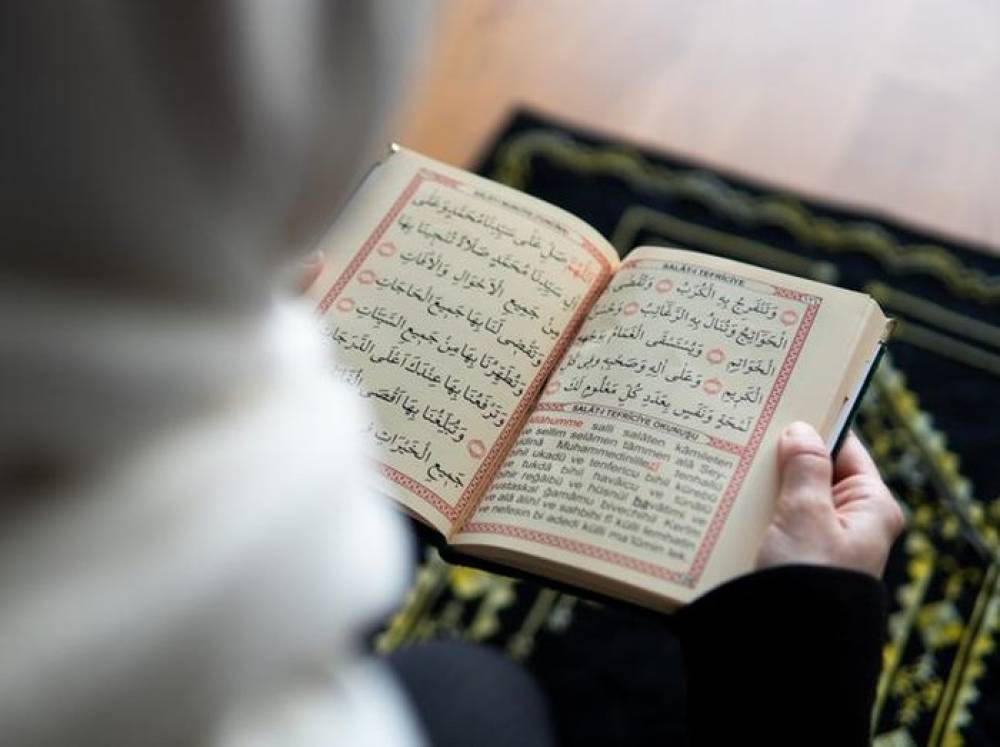 اَللّٰهُمَّ صَلِّ عَلَى سَيِّدِنَا مُحَمَّدٍ وَعَلَى
اٰلِ سَيِّدِنَا مُحَمَّدٍ صَلَاةً تُنْجِينَا بِهَا
مِنْ جَمِيعِ الْاَهْوَالِ وَالْاٰفَاتِ
وَتَقْضِى لَنَا بِهَا جَمِيعَ الْحَاجَاتِ
وَتُطَهِّرُنَا بِهَا مِنْ جَمِيعِ السَّيِّئَاتِ
وَتَرْفَعُنَا بِهَا عِنْدَكَ اَعْلَى الدَّرَجَاتِ
وَتُبَلِّغُنَا بِهَا اَقْصَى
جَمِيعِ الْخَيْرَاتِ
SALÂT-I TEFRİCİYE
وَتَنْفَرِجُ بِهِ الْكُرَبُ وَتُقْضَى
الْحَوَائِجُ وَتُنَالُ بِهِ الرَّغَائِبُ وَحُسْنُ
الْخَوَاتِمِ وَيُسْتَسْقَى الْغَمَامُ
الْكَرِيمِ وَعَلَى اٰلِهِ وَصَحْبِهِ فِى كُلِّ
لَمْحَةٍ وَنَفَسٍ بِعَدَدِ كُلِّ مَعْلُومٍ لَكَ
SALÂT-I TEFRİCİYE OKUNUŞU
salli salâten kâmileten
ve sellim selâmen tâmmen alâ Sey-
Muhammedinillezî tenhallu
bihil ukadü ve tenfericu bihil kürebü
ve tukdâ bihil havâicu ve tünâlü
bihir reğâibü ve hüsnül havâtimi ve
yustaskal ğamâmu bivechihil Kerîm
ve alâ âlihî ve sahbihî fî külli lemhatin
ve nefesin bi adedi külli ma'lûmin lek.